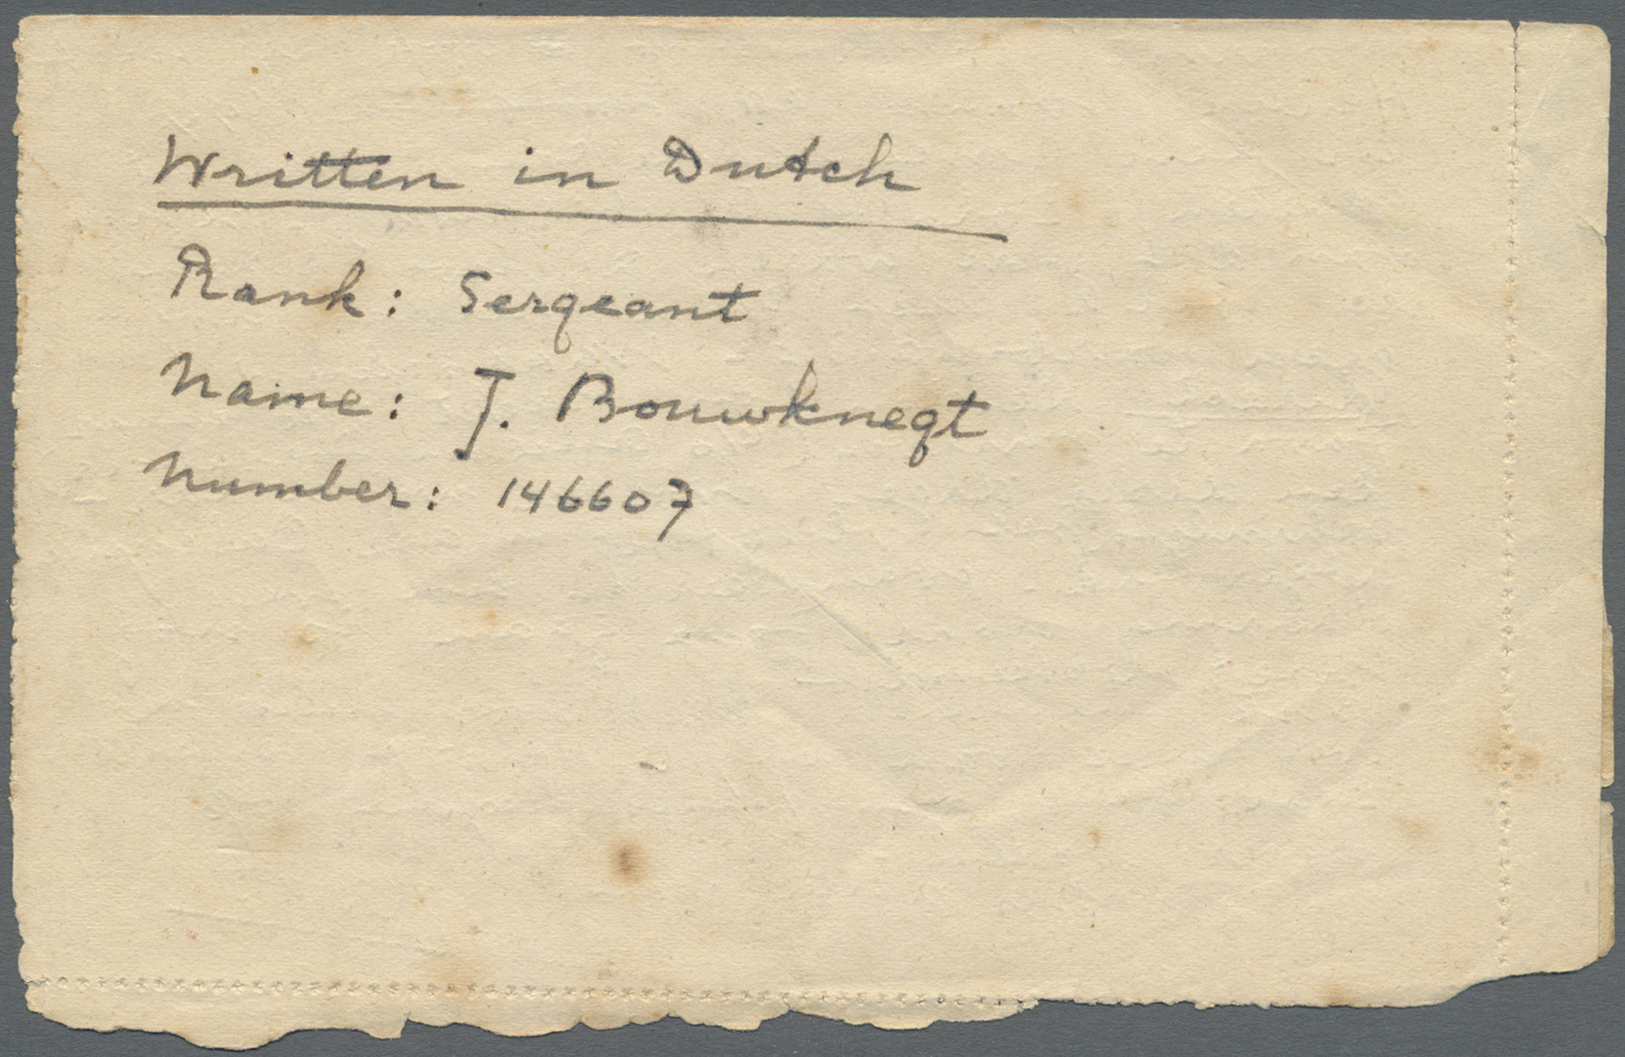 Written in Dutch
Rank: Sergeant
Name: J. Bouwknegt
Number: 146607